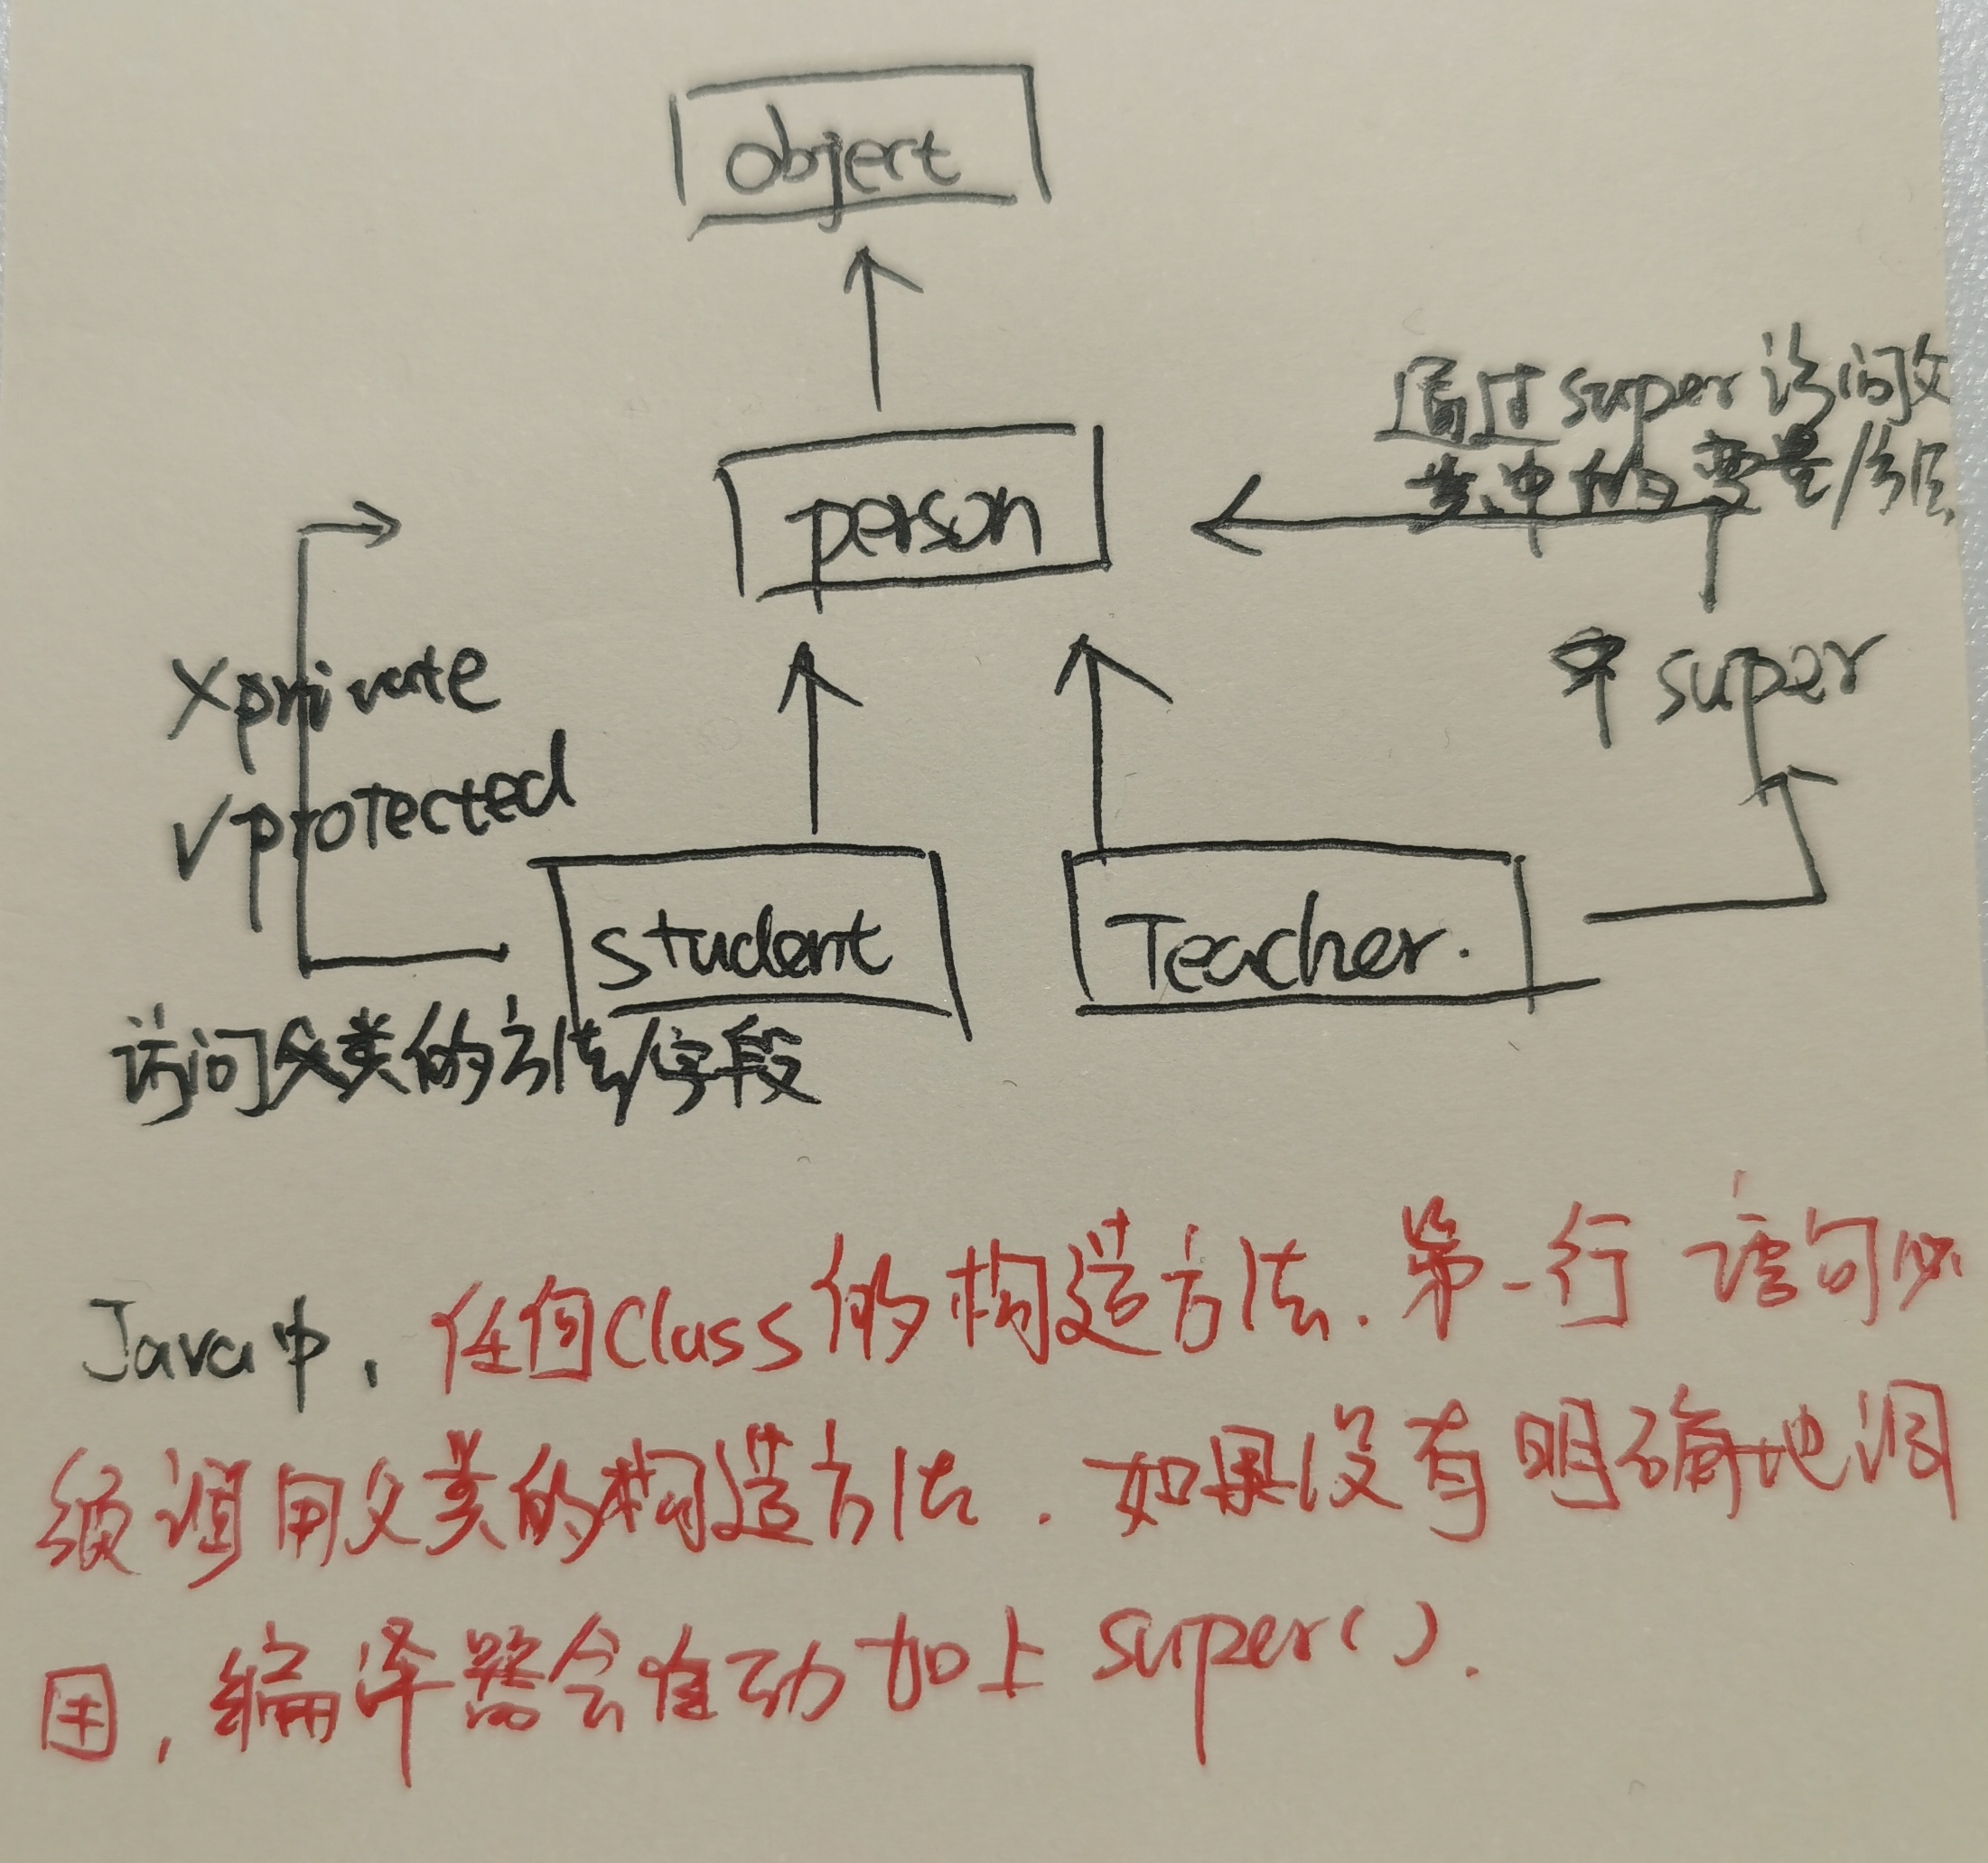 object
通过super访问父
类中的变量/
person
super
Xprivate
√protected
student
Teacher.
访问父类的方法/字段
Java中，任何Class的构造方法.第一行语句必
须调用父类的构造方法.如果没有明确地调
用，编译器会自动加上super().